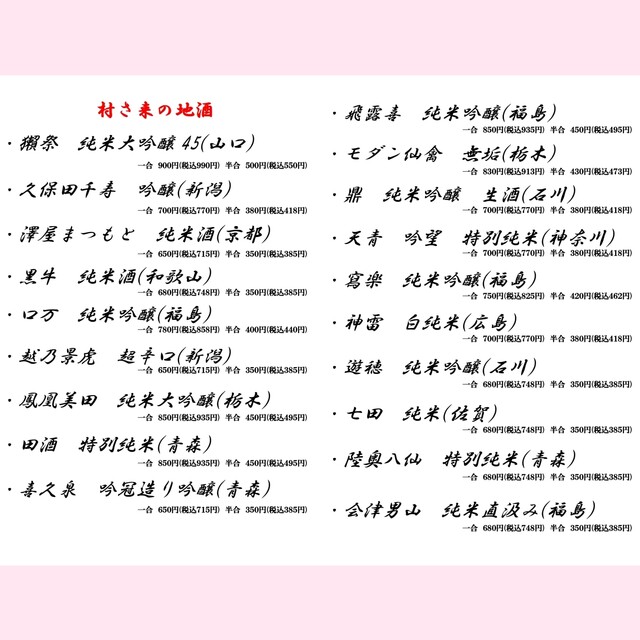 村さ来の地酒
・獺祭　純米大吟醸45(山口)
一合 900円(税込990円) 半合 500円(税込550円)
・久保田千寿　吟醸(新潟)
一合 700円(税込770円) 半合 380円(税込418円)
・澤屋まつもと　純米酒(京都)
一合 650円(税込715円) 半合 350円(税込385円)
・黒牛　純米酒(和歌山)
一合 680円(税込748円) 半合 350円(税込385円)
・口万　純米吟醸(福島)
一合 780円(税込858円) 半合 400円(税込440円)
・越乃景虎　超辛口(新潟)
一合 650円(税込715円) 半合 350円(税込385円)
・鳳凰美田　純米大吟醸(栃木)
一合 850円(税込935円) 半合 450円(税込495円)
・田酒　特別純米(青森)
一合 850円(税込935円) 半合 450円(税込495円)
・喜久泉　吟冠造り吟醸(青森)
一合 650円(税込715円) 半合 350円(税込385円)
・飛露喜　純米吟醸(福島)
一合 850円(税込935円) 半合 450円(税込495円)
・モダン仙禽　無垢(栃木)
一合 830円(税込913円) 半合 430円(税込473円)
・鼎　純米吟醸　生酒(石川)
一合 700円(税込770円) 半合 380円(税込418円)
・天青　吟望　特別純米(神奈川)
一合 700円(税込770円) 半合 380円(税込418円)
・寫楽　純米吟醸(福島)
一合 750円(税込825円) 半合 420円(税込462円)
・神雷　白純米(広島)
一合 700円(税込770円) 半合 380円(税込418円)
・遊穂　純米吟醸(石川)
一合 680円(税込748円) 半合 350円(税込385円)
・七田　純米(佐賀)
一合 680円(税込748円) 半合 350円(税込385円)
・陸奥八仙　特別純米(青森)
一合 680円(税込748円) 半合 350円(税込385円)
・会津男山　純米直汲み(福島)
一合 680円(税込748円) 半合 350円(税込385円)